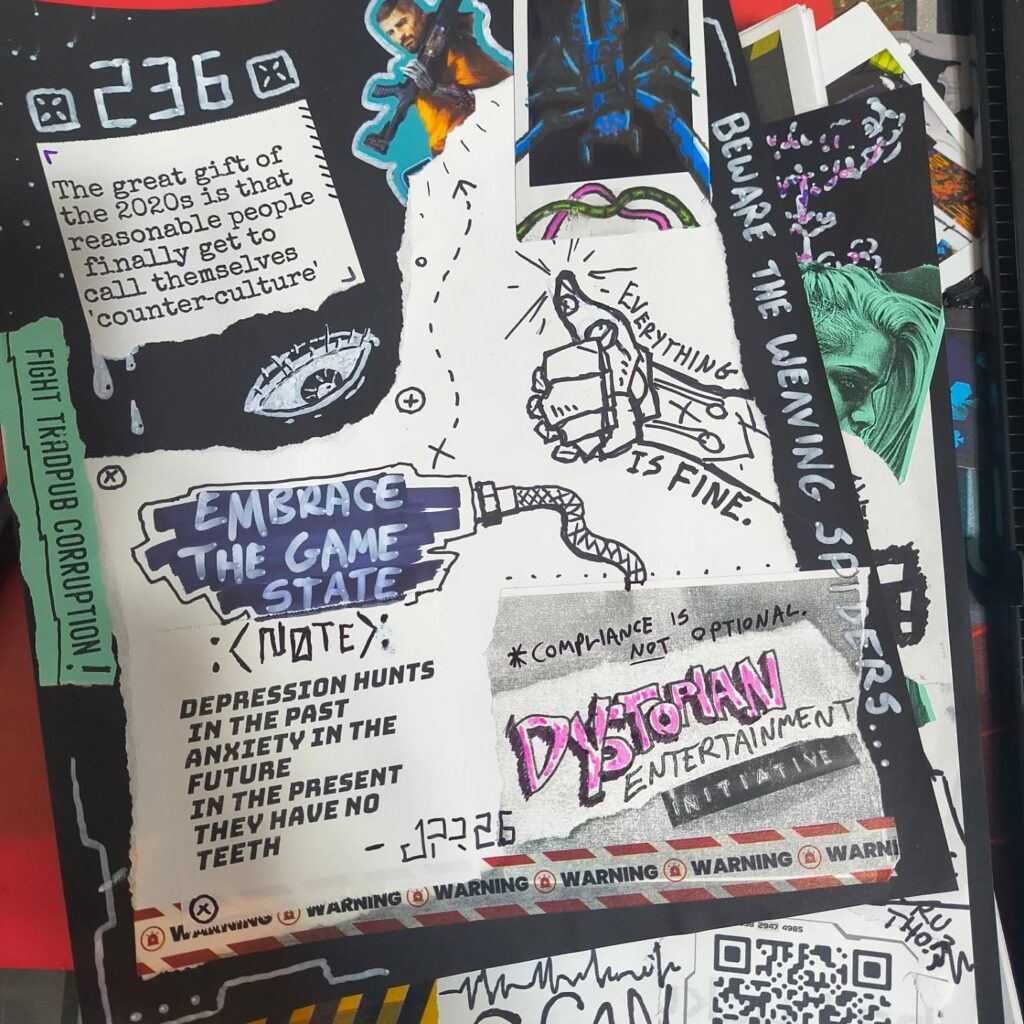 236
The great gift of
the 2020s is that
reasonable people
finally get to
call themselves
'counter-culture'
BEWARE THE WEAVING SPIDERS...
EVERYTHING
IS FINE.
FIGHT TRADPUB CORRUPTION!
EMBRACE
THE GAME
STATE
:<NOTE>:
DEPRESSION HUNTS
IN THE PAST
ANXIETY IN THE
FUTURE
IN THE PRESENT
THEY HAVE NO
TEETH
*COMPLIANCE IS
NOT OPTIONAL.
DYSTOPIAN
ENTERTAINMENT
INITIATIVE
WARNING WARNING WARNING WARNING WARNI
2947 4985
SCAN